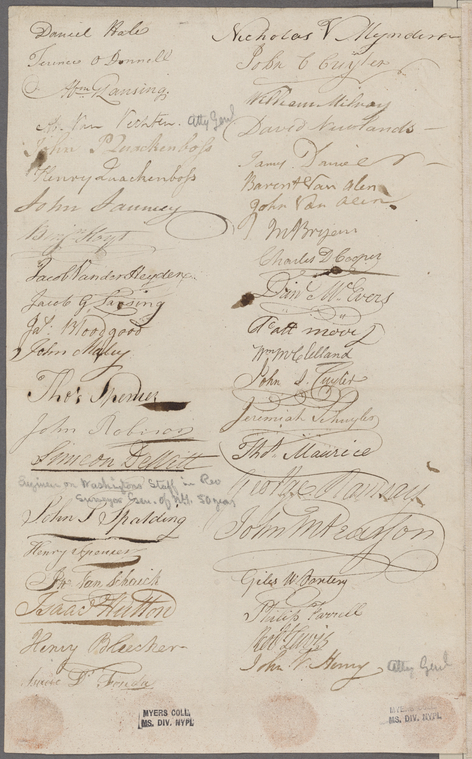 Daniel Hale
Terence O Donnell
Abm G Lansing
Ab. Van Vechten. Atty Genl
John P Quackenboss
Henry Quackenboss
John Janney
Benjn Hoyt
Jacob Vander Heyden
Jacob G Lansing
Jas. Bloodgood
John Maley
Thos Spencer
John Robison
Simeon DeWitt
Engineer on Washington's Staff in Rev
Surveyor Gen. of N.Y. 50 years
John S Spalding
Henry Spencer
Van Schaick
Isaac Hutton
Henry Bleecker
Fonda
Nicholas V Mynderse
John C Cuyler
William Milroy
David Newlands
James Daniel
Barent Van Alen
John Van Alen
M Bryan
Charles D Cooper
Danl McEvers
Moore
Wm McClelland
John S. Cuyler
Jeremiah Schuyler
Thos. Maurice
George
John M Pearson
Giles W Porter
Philip Parnell
Robt Lewis
John V. Henry Atty Genl
MYERS COLL.
MS. DIV. NYPL
MYERS COLL.
MS. DIV. NYPL